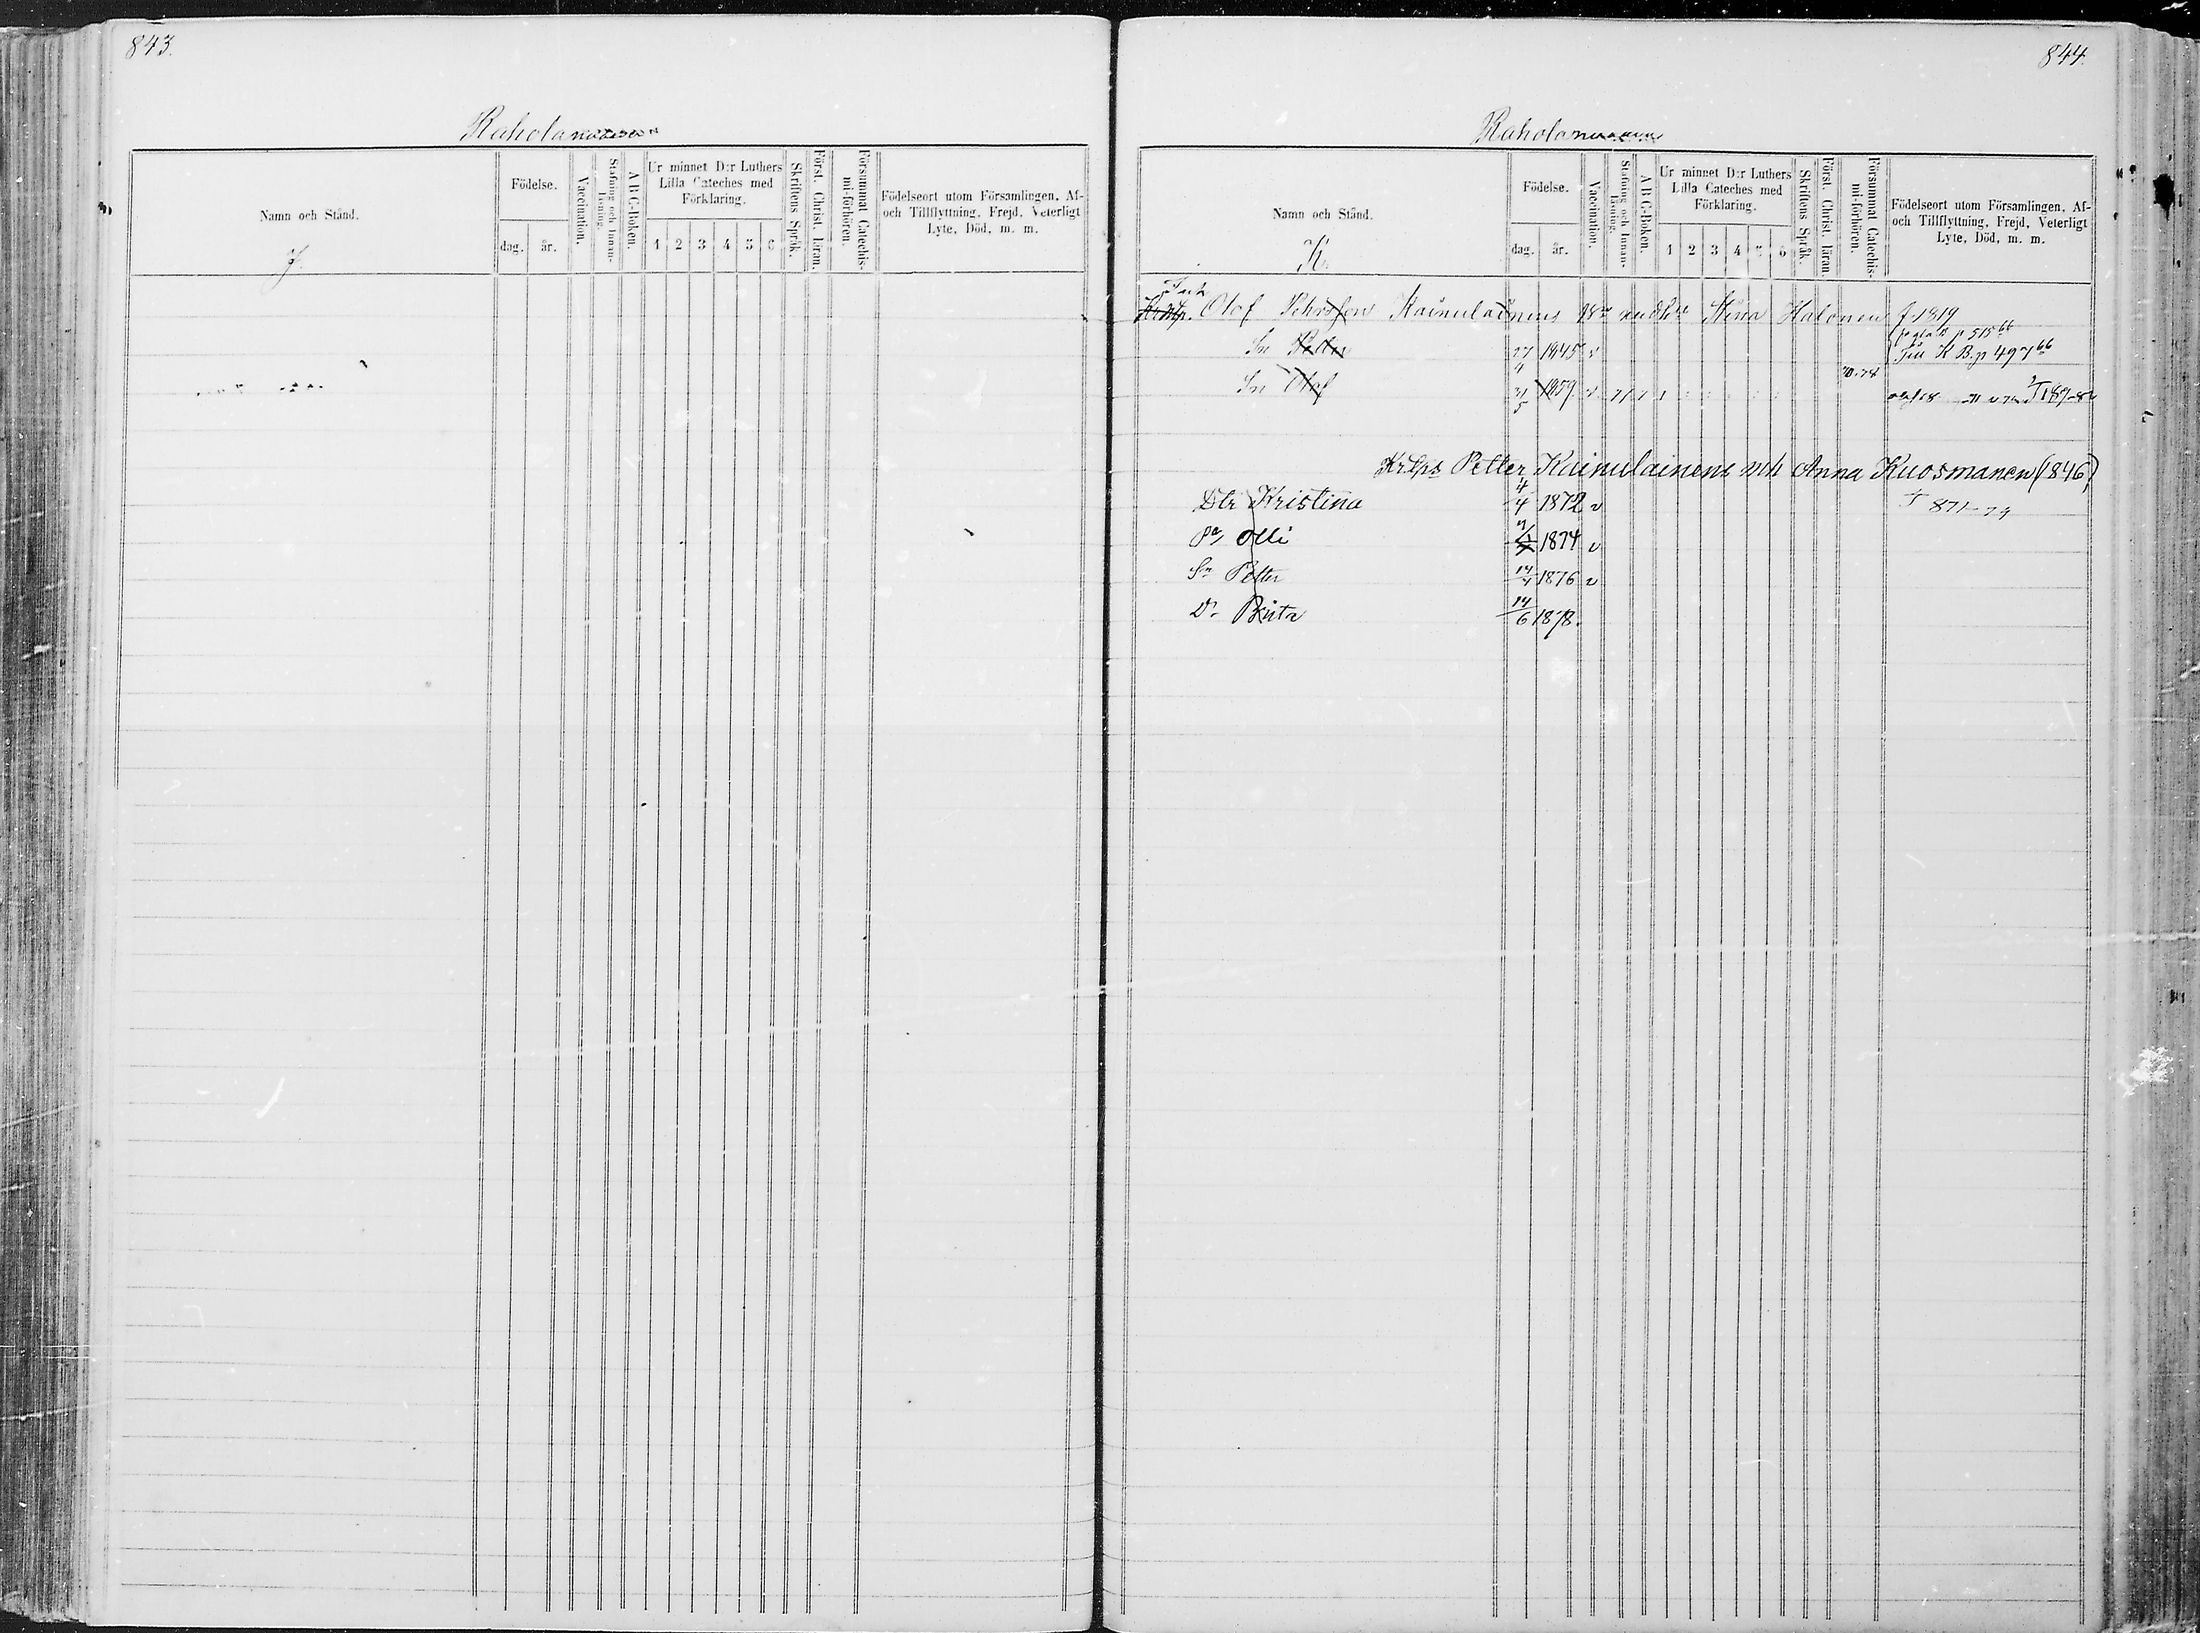 843.
Raholanmaa
Namn och Stånd.
J.
Födelse.
dag.
år.
Vaccination.
Stafning och Innan-
läsning.
A B C-Boken.
Ur minnet D:r Luthers
Lilla Cateches med
Förklaring.
1 2 3 4 5 6
Skriftens Språk.
Först. Christ. läran.
Försummat Catechis-
mi-förhören.
Födelseort utom Församlingen, Af-
och Tillflyttning, Frejd, Veterligt
Lyte, Död, m. m.
844.
Raholanmaa
Namn och Stånd.
K.
Födelse.
dag.
år.
Vaccination.
Stafning och Innan-
läsning.
A B C-Boken.
Ur minnet D:r Luthers
Lilla Cateches med
Förklaring.
1 2 3 4 5 6
Skriftens Språk.
Först. Christ. läran.
Försummat Catechis-
mi-förhören.
Födelseort utom Församlingen, Af-
och Tillflyttning, Frejd, Veterligt
Lyte, Död, m. m.
Olof Pehrsson Kainulainens Stina Halonen f. 1819
Sn Petter 27/4 1845 v Till K B. p 497 66
Sn Olof 21/5 1859 v 70.74
Petter Kainulainens och Anna Kuosmanen (1846)
Dtr Kristina 4/4 1872 v
Olli 1874 v
Sn Petter 14/4 1876 v
Dr Brita 14/6 1878.